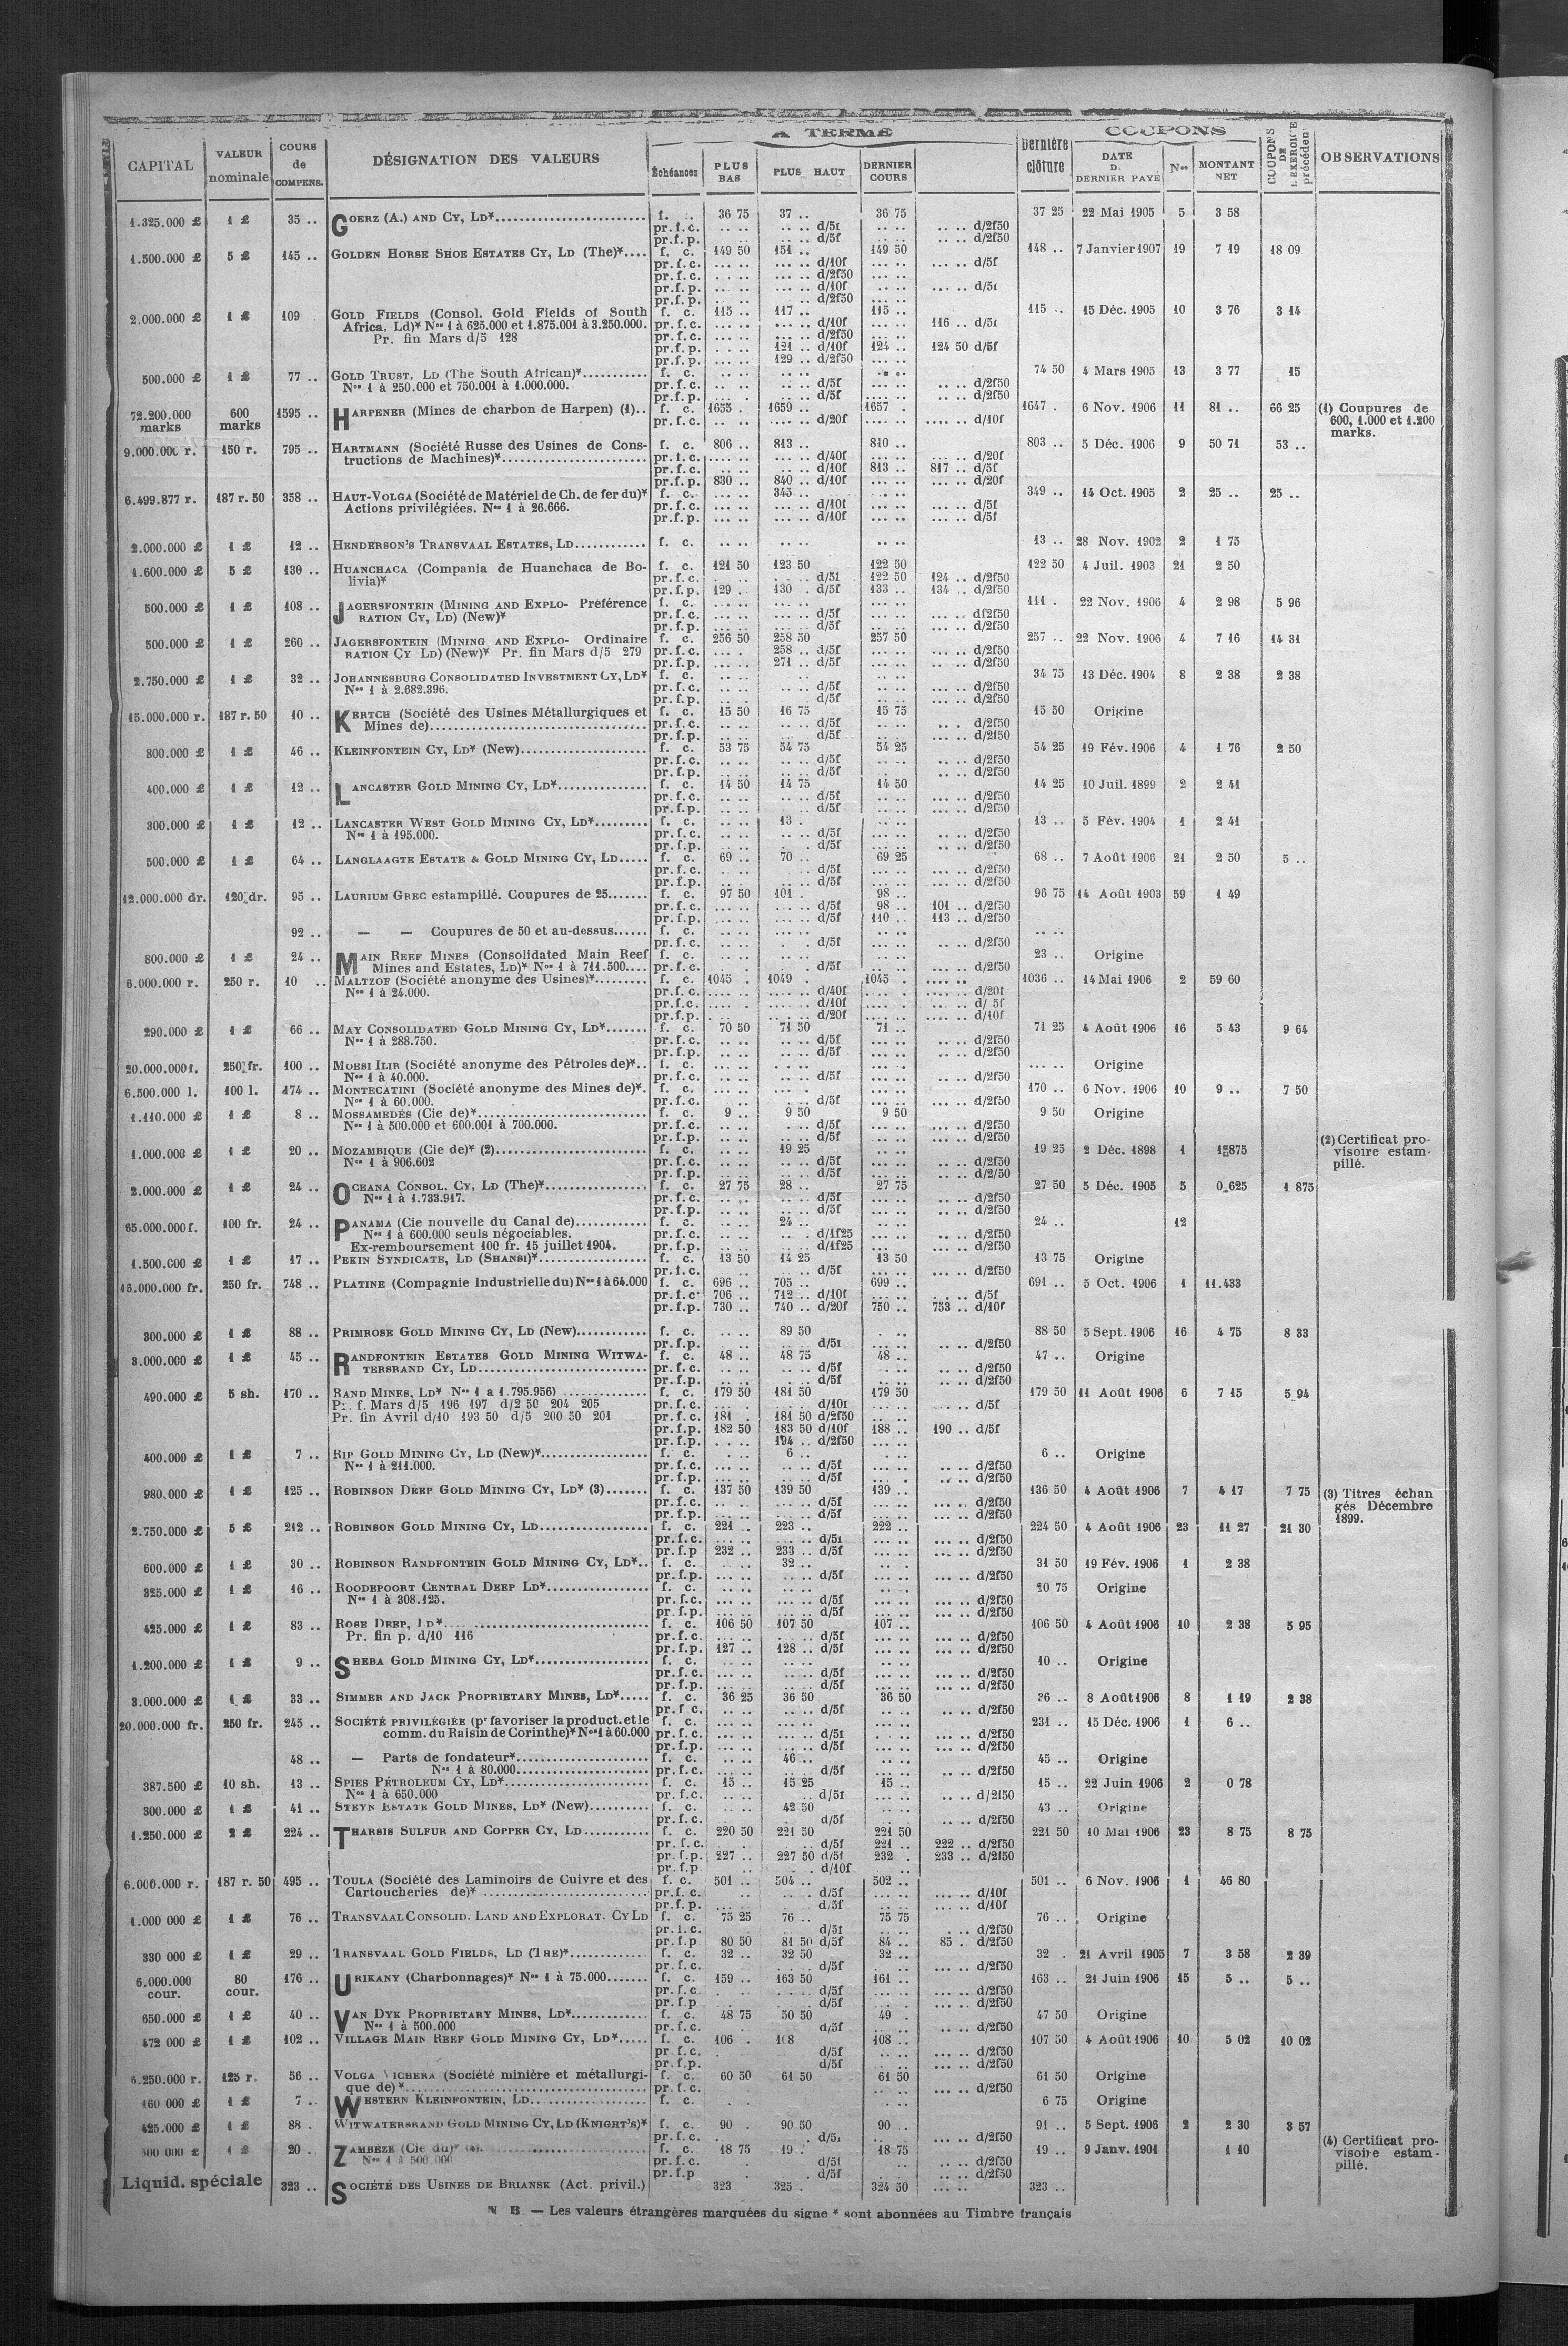 A TERME
COUPONS
CAPITAL | VALEUR nominale | COURS de COMPENS. | DÉSIGNATION DES VALEURS | Échéances | PLUS BAS | PLUS HAUT | DERNIER COURS | Dernière clôture | DATE D. DERNIER PAYÉ | Nos | MONTANT NET | COUPONS DE L'EXERCICE précédent | OBSERVATIONS
1.325.000 £ | 1 £ | 35 .. | GOERZ (A.) AND CY, LD* | f. .. | 36 75 | 37 .. | 36 75 | 37 25 | 22 Mai 1905 | 5 | 3 58
pr.f.c. .. .. .. .. d/5f .. .. .. .. d/2f50
pr.f.p. .. .. .. d/5f .. .. .. .. d/2f50
1.500.000 £ | 5 £ | 145 .. | GOLDEN HORSE SHOE ESTATES CY, LD (The)* | f. c. | 149 50 | 151 .. | 149 50 | 148 .. | 7 Janvier 1907 | 19 | 7 19 | 18 09
pr.f.c. d/10f d/5f
pr.f.c. d/2f50
pr.f.p. d/10f d/5f
pr.f.p. d/2f50
2.000.000 £ | 1 £ | 109 | GOLD FIELDS (Consol. Gold Fields of South | f. c. | 115 .. | 117 .. | 115 .. | 115 .. | 15 Déc. 1905 | 10 | 3 76 | 3 14
Africa, Ld)* Nos 1 à 625.000 et 1.875.001 à 3.250.000. | pr.f.c. | d/10f | 116 .. d/5f
Pr. fin Mars d/5 128 | pr.f.c. | d/2f50
pr.f.p. 121 .. d/10f 124 .. 124 50 d/5f
pr.f.p. 129 .. d/2f50
500.000 £ | 1 £ | 77 .. | GOLD TRUST, LD (The South African)* | f. c. | 74 50 | 4 Mars 1905 | 13 | 3 77 | 15
Nos 1 à 250.000 et 750.001 à 1.000.000. | pr.f.c. | d/5f | d/2f50
pr.f.p. d/5f d/2f50
72.200.000 marks | 600 marks | 1595 .. | HARPENER (Mines de charbon de Harpen) (1) | f. c. | 1655 . | 1659 .. | 1657 . | 1647 . | 6 Nov. 1906 | 11 | 81 .. | 66 25 | (1) Coupures de 600, 1.000 et 1.200 marks.
pr.f.c. d/20f d/10f
9.000.000 r. | 150 r. | 795 .. | HARTMANN (Société Russe des Usines de Cons- | f. c. | 806 .. | 813 .. | 810 .. | 803 .. | 5 Déc. 1906 | 9 | 50 71 | 53 ..
tructions de Machines)* | pr.f.c. | d/40f | d/20f
pr.f.c. d/10f 813 .. 817 .. d/5f
pr.f.p. 830 .. 840 .. d/10f d/20f
6.499.877 r. | 187 r. 50 | 358 .. | HAUT-VOLGA (Société de Matériel de Ch. de fer du)* | f. c. | 345 .. | 349 .. | 14 Oct. 1905 | 2 | 25 .. | 25 ..
Actions privilégiées. Nos 1 à 26.666. | pr.f.c. | d/10f | d/5f
pr.f.p. d/10f d/5f
2.000.000 £ | 1 £ | 12 .. | HENDERSON'S TRANSVAAL ESTATES, LD | f. c. | 13 .. | 28 Nov. 1902 | 2 | 1 75
1.600.000 £ | 5 £ | 130 .. | HUANCHACA (Compania de Huanchaca de Bo- | f. c. | 121 50 | 123 50 | 122 50 | 122 50 | 4 Juil. 1903 | 21 | 2 50
livia)* | pr.f.c. | d/5f | 122 50 | 124 .. d/2f50
pr.f.p. 129 .. 130 . d/5f 133 .. 134 .. d/2f50
500.000 £ | 1 £ | 108 .. | JAGERSFONTEIN (MINING AND EXPLO- Préférence | f. c. | 111 . | 22 Nov. 1906 | 4 | 2 98 | 5 96
RATION CY, LD) (New)* | pr.f.c. | d/5f | d/2f50
pr.f.p. d/5f d/2f50
500.000 £ | 1 £ | 260 .. | JAGERSFONTEIN (MINING AND EXPLO- Ordinaire | f. c. | 256 50 | 258 50 | 257 50 | 257 .. | 22 Nov. 1906 | 4 | 7 16 | 14 31
RATION CY LD) (New)* Pr. fin Mars d/5 279 | pr.f.c. | 258 .. d/5f | d/2f50
pr.f.p. 271 .. d/5f d/2f50
2.750.000 £ | 1 £ | 32 .. | JOHANNESBURG CONSOLIDATED INVESTMENT CY, LD* | f. c. | 34 75 | 13 Déc. 1904 | 8 | 2 38 | 2 38
Nos 1 à 2.682.396. | pr.f.c. | d/5f | d/2f50
pr.f.p. d/5f d/2f50
15.000.000 r. | 187 r. 50 | 10 .. | KERTCH (Société des Usines Métallurgiques et | f. c. | 15 50 | 16 75 | 15 75 | 15 50 | Origine
Mines de) | pr.f.c. | d/5f | d/2f50
pr.f.p. d/5f d/2f50
800.000 £ | 1 £ | 46 .. | KLEINFONTEIN CY, LD* (New) | f. c. | 53 75 | 54 75 | 54 25 | 54 25 | 19 Fév. 1906 | 4 | 1 76 | 2 50
pr.f.c. d/5f d/2f50
pr.f.p. d/5f d/2f50
400.000 £ | 1 £ | 12 .. | LANCASTER GOLD MINING CY, LD* | f. c. | 14 50 | 14 75 | 14 50 | 14 25 | 10 Juil. 1899 | 2 | 2 41
pr.f.c. d/5f d/2f50
pr.f.p. d/5f d/2f50
300.000 £ | 1 £ | 12 .. | LANCASTER WEST GOLD MINING CY, LD* | f. c. | 13 . | 13 .. | 5 Fév. 1904 | 1 | 2 41
Nos 1 à 195.000. | pr.f.c. | d/5f | d/2f50
pr.f.p. d/5f d/2f50
500.000 £ | 1 £ | 64 .. | LANGLAAGTE ESTATE & GOLD MINING CY, LD | f. c. | 69 .. | 70 .. | 69 25 | 68 .. | 7 Août 1906 | 21 | 2 50 | 5 ..
pr.f.c. d/5f d/2f50
pr.f.p. d/5f d/2f50
12.000.000 dr. | 120 dr. | 95 .. | LAURIUM GREC estampillé. Coupures de 25 | f. c. | 97 50 | 101 . | 98 .. | 96 75 | 14 Août 1903 | 59 | 1 49
pr.f.c. d/5f 98 .. 101 .. d/2f50
pr.f.p. d/5f 110 .. 113 .. d/2f50
92 .. | — — Coupures de 50 et au-dessus | f. c.
pr.f.c. d/5f d/2f50
800.000 £ | 1 £ | 24 .. | MAIN REEF MINES (Consolidated Main Reef | f. c. | 23 .. | Origine
Mines and Estates, LD)* Nos 1 à 711.500 | pr.f.c. | d/5f | d/2f50
6.000.000 r. | 250 r. | 10 .. | MALTZOF (Société anonyme des Usines)* | f. c. | 1045 . | 1049 . | 1045 . | 1036 .. | 14 Mai 1906 | 2 | 59 60
Nos 1 à 24.000. | pr.f.c. | d/40f | d/20f
pr.f.c. d/10f d/ 5f
pr.f.p. d/20f d/10f
290.000 £ | 1 £ | 66 .. | MAY CONSOLIDATED GOLD MINING CY, LD* | f. c. | 70 50 | 71 50 | 71 .. | 71 25 | 4 Août 1906 | 16 | 5 43 | 9 64
Nos 1 à 288.750. | pr.f.c. | d/5f | d/2f50
pr.f.p. d/5f d/2f50
20.000.000 f. | 250 fr. | 100 .. | MOESI ILIR (Société anonyme des Pétroles de)* | f. c. | Origine
Nos 1 à 40.000. | pr.f.c. | d/5f | d/2f50
6.500.000 l. | 100 l. | 474 .. | MONTECATINI (Société anonyme des Mines de)* | f. c. | 170 .. | 6 Nov. 1906 | 10 | 9 .. | 7 50
Nos 1 à 60.000. | pr.f.c. | d/5f | d/2f50
1.110.000 £ | 1 £ | 8 .. | MOSSAMEDÈS (Cie de)* | f. c. | 9 .. | 9 50 | 9 50 | 9 50 | Origine
Nos 1 à 500.000 et 600.001 à 700.000. | pr.f.c. | d/5f | d/2f50
pr.f.p. d/5f d/2f50
1.000.000 £ | 1 £ | 20 .. | MOZAMBIQUE (Cie de)* (2) | f. c. | 19 25 | 19 25 | 2 Déc. 1898 | 1 | 15875 | (2) Certificat provisoire estampillé.
Nos 1 à 906.602 | pr.f.c. | d/5f | d/2f50
pr.f.p. d/5f d/2f50
2.000.000 £ | 1 £ | 24 .. | OCEANA CONSOL. CY, LD (The)* | f. c. | 27 75 | 28 .. | 27 75 | 27 50 | 5 Déc. 1905 | 5 | 0 625 | 1 875
Nos 1 à 1.733.917. | pr.f.c. | d/5f | d/2f50
pr.f.p. d/5f d/2f50
65.000.000 f. | 100 fr. | 24 .. | PANAMA (Cie nouvelle du Canal de) | f. c. | 24 .. | 24 .. | 12
Nos 1 à 600.000 seuls négociables. | pr.f.c. | d/1f25 | d/2f50
Ex-remboursement 100 fr. 15 juillet 1904. | pr.f.p. | d/1f25 | d/2f50
1.500.000 £ | 1 £ | 17 .. | PEKIN SYNDICATE, LD (SHANSI)* | f. c. | 13 50 | 14 25 | 13 50 | 13 75 | Origine
pr.f.c. d/5f d/2f50
16.000.000 fr. | 250 fr. | 748 .. | PLATINE (Compagnie Industrielle du) Nos 1 à 64.000 | f. c. | 696 .. | 705 .. | 699 .. | 691 .. | 5 Oct. 1906 | 1 | 11.433
pr.f.c. 706 .. 712 .. d/10f d/5f
pr.f.p. 730 .. 740 .. d/20f 750 .. 753 .. d/10f
300.000 £ | 1 £ | 88 .. | PRIMROSE GOLD MINING CY, LD (New) | f. c. | 89 50 | 88 50 | 5 Sept. 1906 | 16 | 4 75 | 8 33
pr.f.p. d/5f d/2f50
3.000.000 £ | 1 £ | 45 .. | RANDFONTEIN ESTATES GOLD MINING WITWA- | f. c. | 48 .. | 48 75 | 48 .. | 47 .. | Origine
TERSRAND CY, LD | pr.f.c. | d/5f | d/2f50
pr.f.p. d/5f d/2f50
490.000 £ | 5 sh. | 170 .. | RAND MINES, LD* Nos 1 a 1.795.956) | f. c. | 179 50 | 181 50 | 179 50 | 179 50 | 11 Août 1906 | 6 | 7 15 | 5 94
Pr. f. Mars d/5 196 197 d/2 50 204 205 | pr.f.c. | d/10f | d/5f
Pr. fin Avril d/10 193 50 d/5 200 50 201 | pr.f.c. | 181 . | 181 50 d/2f50
pr.f.p. 182 50 183 50 d/10f 188 .. 190 .. d/5f
pr.f.p. 194 .. d/2f50
400.000 £ | 1 £ | 7 .. | RIP GOLD MINING CY, LD (New)* | f. c. | 6 .. | 6 .. | Origine
Nos 1 à 211.000. | pr.f.c. | d/5f | d/2f50
pr.f.p. d/5f d/2f50
980.000 £ | 1 £ | 125 .. | ROBINSON DEEP GOLD MINING CY, LD* (3) | f. c. | 137 50 | 139 50 | 139 .. | 136 50 | 4 Août 1906 | 7 | 4 17 | 7 75 | (3) Titres échangés Décembre 1899.
pr.f.c. d/5f d/2f50
pr.f.p. d/5f d/2f50
2.750.000 £ | 5 £ | 212 .. | ROBINSON GOLD MINING CY, LD | f. c. | 221 .. | 223 .. | 222 .. | 224 50 | 4 Août 1906 | 23 | 11 27 | 21 30
pr.f.c. d/5f d/2f50
pr.f.p 232 .. 233 .. d/5f d/2f50
600.000 £ | 1 £ | 30 .. | ROBINSON RANDFONTEIN GOLD MINING CY, LD* | f. c. | 32 .. | 31 50 | 19 Fév. 1906 | 1 | 2 38
pr.f.p. d/5f d/2f50
325.000 £ | 1 £ | 16 .. | ROODEPOORT CENTRAL DEEP LD* | f. c. | 20 75 | Origine
Nos 1 à 308.125. | pr.f.c. | d/5f | d/2f50
pr.f.p. d/5f d/2f50
425.000 £ | 1 £ | 83 .. | ROSE DEEP, LD* | f. c. | 106 50 | 107 50 | 107 .. | 106 50 | 4 Août 1906 | 10 | 2 38 | 5 95
Pr. fin p. d/10 116 | pr.f.c. | d/5f | d/2f50
pr.f.p. 127 .. 128 .. d/5f d/2f50
1.200.000 £ | 1 £ | 9 .. | SHEBA GOLD MINING CY, LD* | f. c. | 10 .. | Origine
pr.f.c. d/5f d/2f50
pr.f.p. d/5f d/2f50
3.000.000 £ | 1 £ | 33 .. | SIMMER AND JACK PROPRIETARY MINES, LD* | f. c. | 36 25 | 36 50 | 36 50 | 36 .. | 8 Août 1906 | 8 | 1 19 | 2 38
pr.f.c. d/5f d/2f50
20.000.000 fr. | 250 fr. | 245 .. | SOCIÉTÉ PRIVILÉGIÉE (pr favoriser la product. et le | f. c. | 231 .. | 15 Déc. 1906 | 1 | 6 ..
comm. du Raisin de Corinthe)* Nos 1 à 60.000 | pr.f.c. | d/5f | d/2f50
pr.f.p. d/5f d/2f50
48 .. | — Parts de fondateur* | f. c. | 46 .. | 45 .. | Origine
Nos 1 à 80.000 | pr.f.c. | d/5f | d/2f50
387.500 £ | 10 sh. | 13 .. | SPIES PÉTROLEUM CY, LD* | f. c. | 15 .. | 15 25 | 15 .. | 15 .. | 22 Juin 1906 | 2 | 0 78
Nos 1 à 650.000 | pr.f.c. | d/5f | d/2f50
300.000 £ | 1 £ | 41 .. | STEYN ESTATE GOLD MINES, LD* (New) | f. c. | 42 50 | 43 .. | Origine
pr.f.c. d/5f d/2f50
1.250.000 £ | 2 £ | 224 .. | THARSIS SULFUR AND COPPER CY, LD | f. c. | 220 50 | 221 50 | 221 50 | 221 50 | 10 Mai 1906 | 23 | 8 75 | 8 75
pr.f.c. d/5f 221 .. 222 .. d/2f50
pr.f.p. 227 .. 227 50 d/5f 232 . 233 .. d/2f50
pr.f.p d/10f
6.000.000 r. | 187 r. 50 | 495 .. | TOULA (Société des Laminoirs de Cuivre et des | f. c. | 501 .. | 504 .. | 502 .. | 501 .. | 6 Nov. 1906 | 1 | 46 80
Cartoucheries de)* | pr.f.c. | d/5f | d/10f
pr.f.p. d/5f d/10f
1.000 000 £ | 1 £ | 76 .. | TRANSVAAL CONSOLID. LAND AND EXPLORAT. CY LD | f. c. | 75 25 | 76 .. | 75 75 | 76 .. | Origine
pr.f.c. d/5f d/2f50
pr.f.p 80 50 81 50 d/5f 84 .. 85 . d/2f50
330 000 £ | 1 £ | 29 .. | TRANSVAAL GOLD FIELDS, LD (THE)* | f. c. | 32 .. | 32 50 | 32 .. | 32 . | 21 Avril 1905 | 7 | 3 58 | 2 39
pr.f.c. d/5f d/2f50
6.000.000 cour. | 80 cour. | 176 .. | URIKANY (Charbonnages)* Nos 1 à 75.000 | f. c. | 159 .. | 163 50 | 161 .. | 163 .. | 21 Juin 1906 | 15 | 5 .. | 5 ..
pr.f.c. d/5f d/2f50
pr.f.p d/5f d/2f50
650.000 £ | 1 £ | 40 .. | VAN DYK PROPRIETARY MINES, LD* | f. c. | 48 75 | 50 50 | 49 . | 47 50 | Origine
Nos 1 à 500.000 | pr.f.c. | d/5f | d/2f50
472 000 £ | 1 £ | 102 .. | VILLAGE MAIN REEF GOLD MINING CY, LD* | f. c. | 106 . | 108 | 108 .. | 107 50 | 4 Août 1906 | 10 | 5 02 | 10 02
pr.f.c. d/5f d/2f50
pr.f.p. d/5f d/2f50
6.250.000 r. | 125 r. | 56 .. | VOLGA VICHERA (Société minière et métallurgi- | f. c. | 60 50 | 61 50 | 61 50 | 61 50 | Origine
que de)* | pr.f.c. | d/2f50
160 000 £ | 1 £ | 7 . | WESTERN KLEINFONTEIN, LD | f. c. | 6 75 | Origine
425.000 £ | 1 £ | 88 . | WITWATERSRAND GOLD MINING CY, LD (KNIGHT'S)* | f. c. | 90 . | 90 50 | 90 .. | 91 .. | 5 Sept. 1906 | 2 | 2 30 | 3 57
pr.f.c. d/5f d/2f50
300 000 £ | 1 £ | 20 . | ZAMBÈZE (Cie du)* (4) | f. c. | 18 75 | 19 . | 18 75 | 19 .. | 9 Janv. 1901 | 1 10 | (4) Certificat provisoire estampillé.
Nos 1 à 500.000 | pr.f.c. | d/5f | d/2f50
pr.f.p d/5f d/2f50
Liquid. spéciale | 323 .. | SOCIÉTÉ DES USINES DE BRIANSK (Act. privil.) | 323 | 325 . | 324 50 | 323 ..
N B — Les valeurs étrangères marquées du signe * sont abonnées au Timbre français